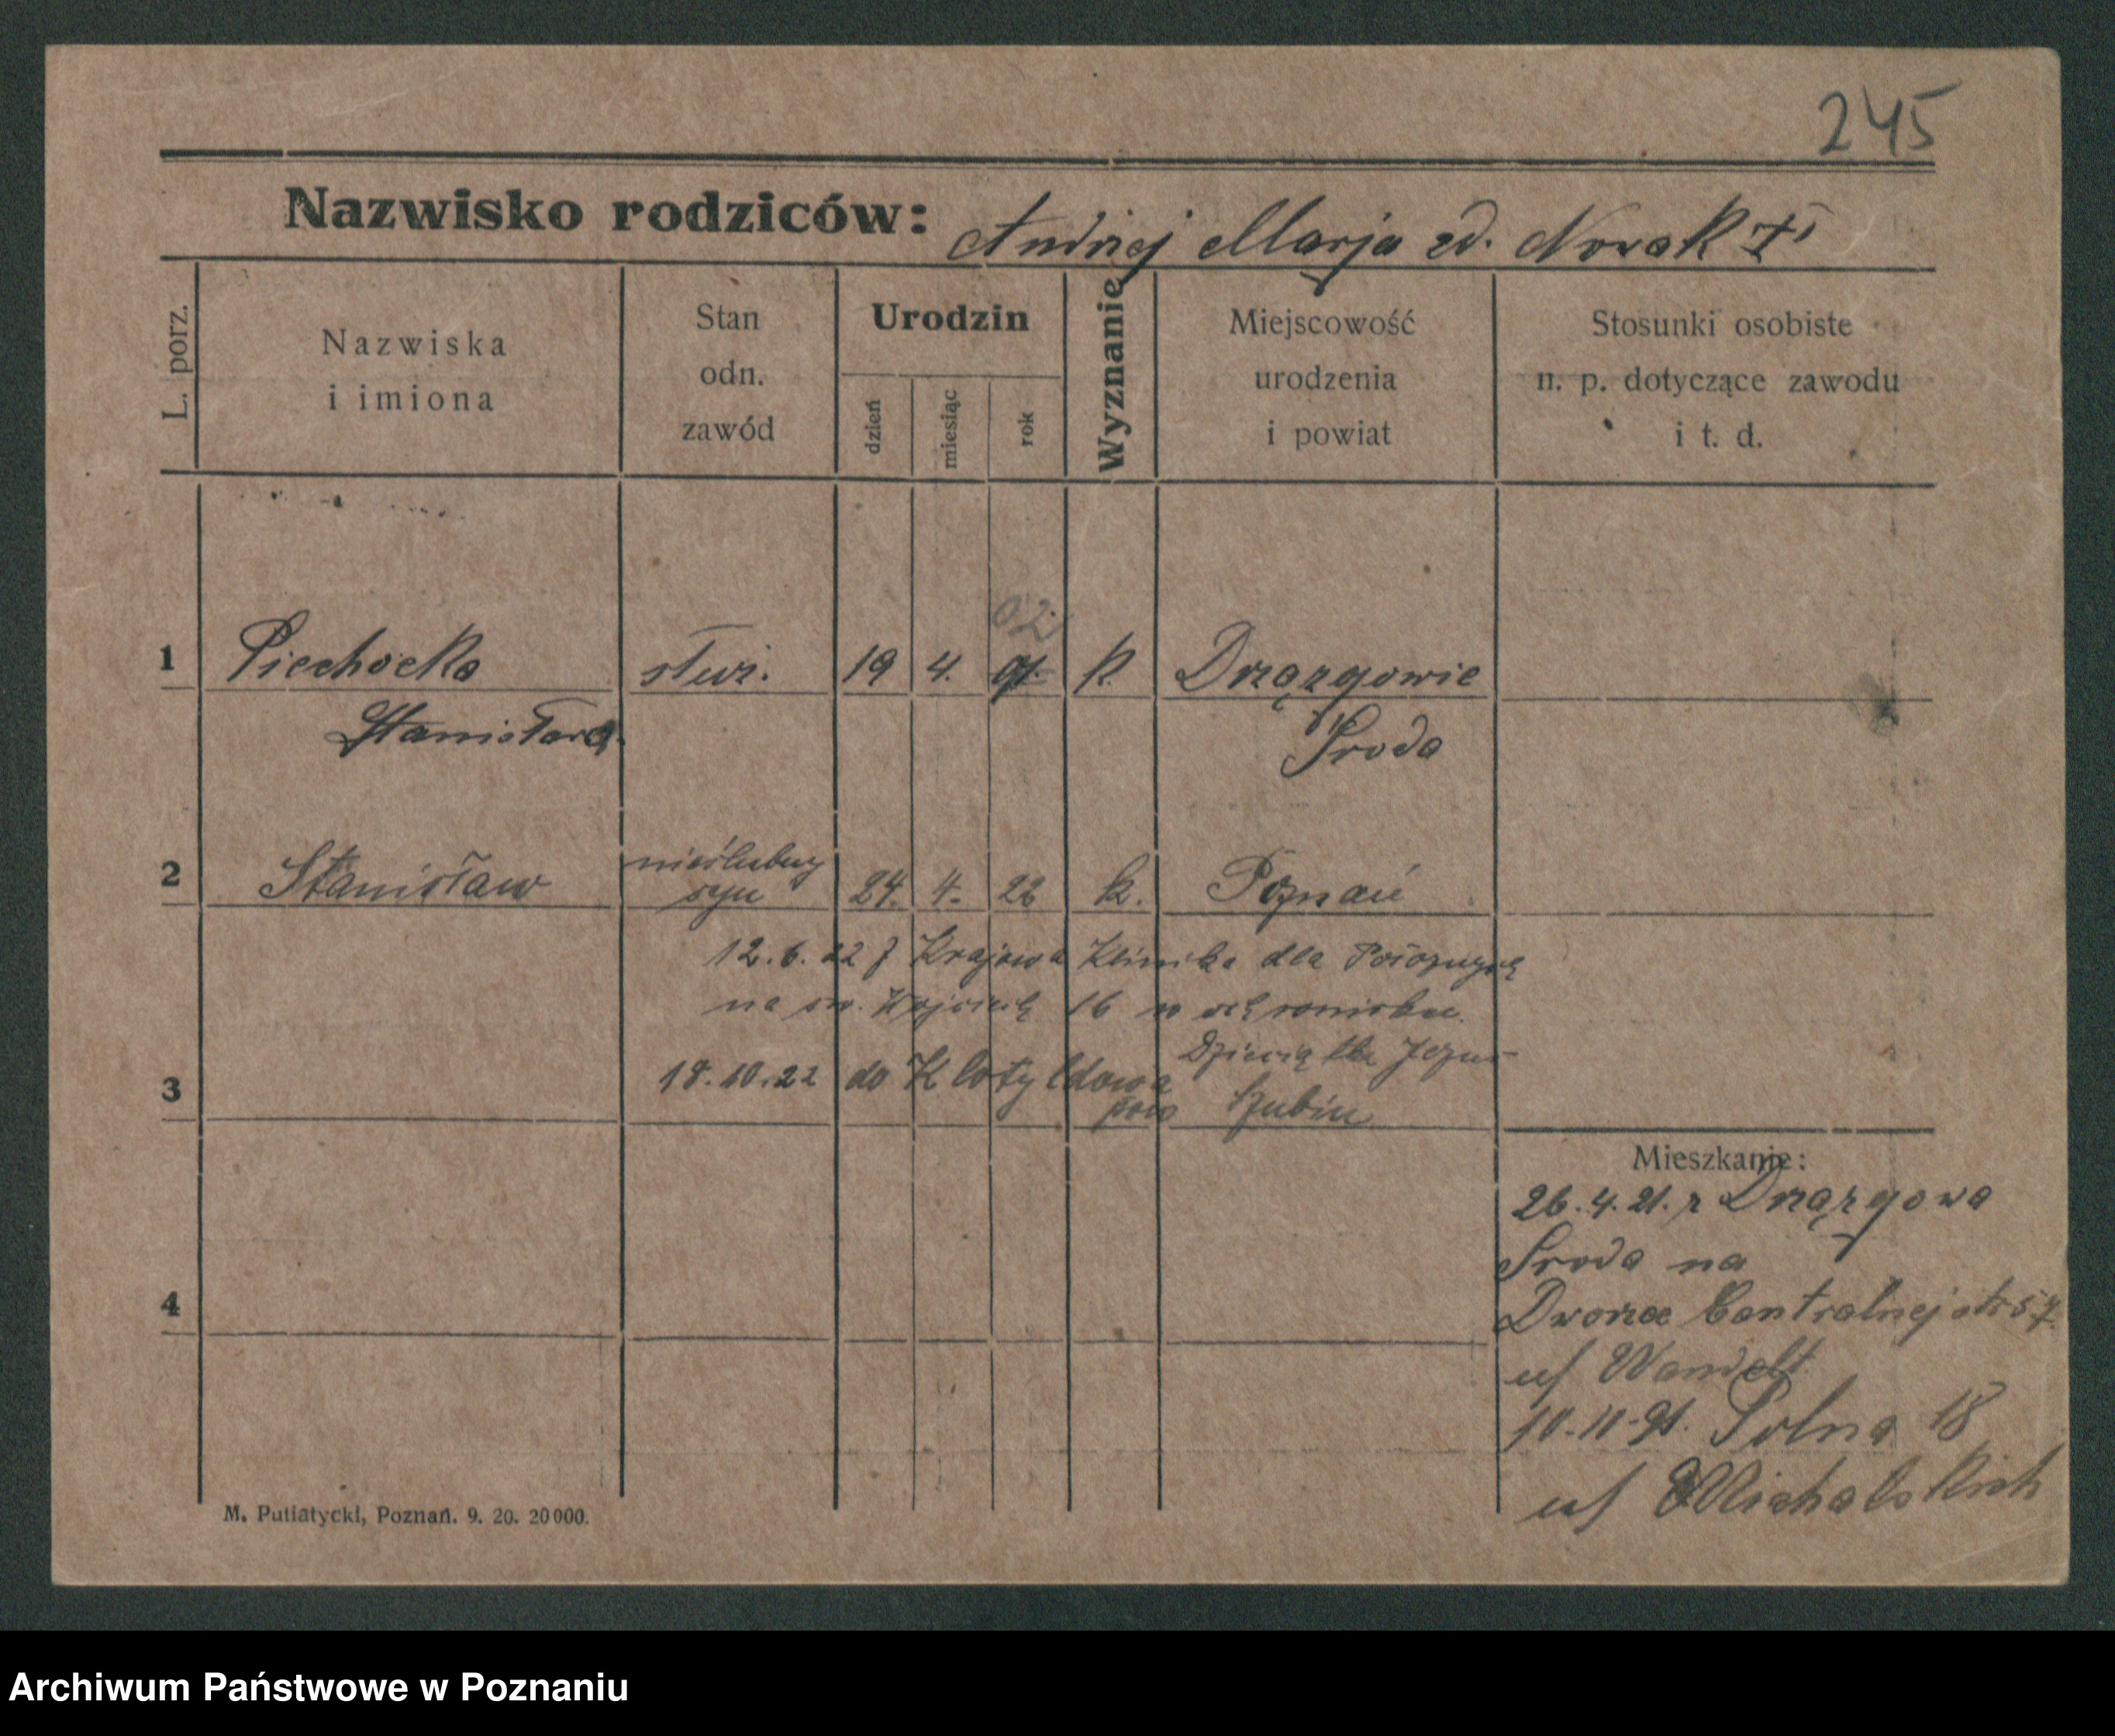 245
Nazwisko rodziców: Andrzej Marja zd. Nowak
L. porz.
Nazwiska i imiona
Stan odn. zawód
Urodzin
dzień miesiąc rok
Wyznanie
Miejscowość urodzenia i powiat
Stosunki osobiste n. p. dotyczące zawodu i t. d.
02
1 Piechocka służ. 19 4. k. Drązgowie
Stanisława Środa
2 Stanisław nieślubny syn 24. 4. 22 k. Poznań
12.6.22 z Krajowa Klinika dla Położnych
na św. Wojciech 16 w schronisku
Dzieciątka Jezus
3 18.10.22 do Klotyldowa
pow Szubin
Mieszkanie:
26.4.21. z Drązgowa
Środa na
4 Dworzec Centralnej
u/ Wandelt
Polna 18
u/ Michalskich
M. Putiatycki, Poznań. 9. 20. 20000.
Archiwum Państwowe w Poznaniu